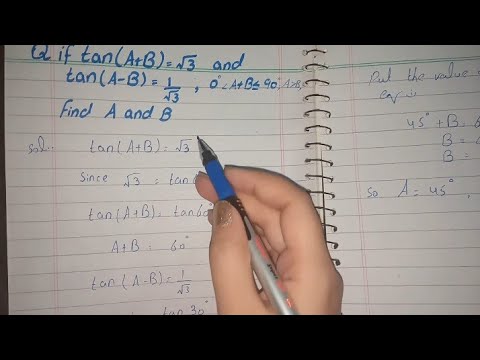 Q if tan(A+B) = √3 and
tan(A-B) = 1/√3 , 0° < A+B ≤ 90° A>B
Find A and B
Sol:-
tan(A+B) = √3
Since √3 = tan
tan(A+B) = tan60°
A+B = 60°
tan(A-B) = 1/√3
tan 30°
Put the value
45° + B =
B =
B =
So A = 45°,